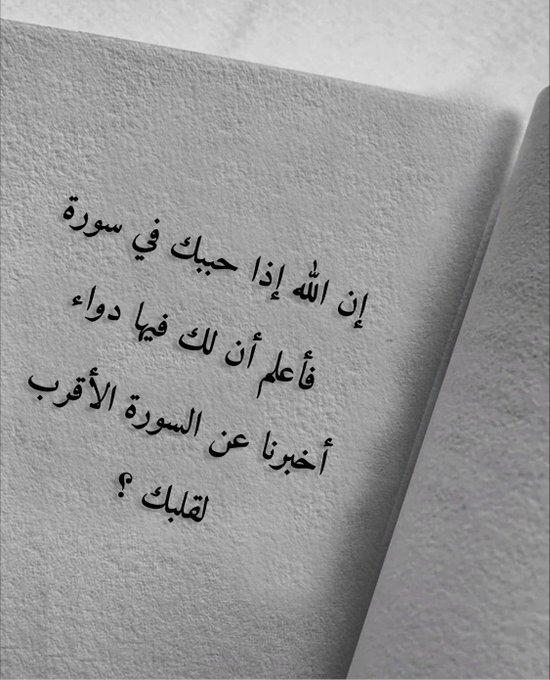 إن الله إذا حببك في سورة
فأعلم أن لك فيها دواء
أخبرنا عن السورة الأقرب
لقلبك ؟